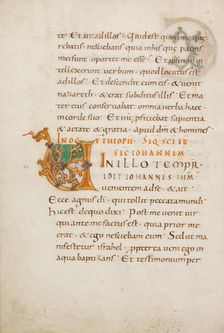 te Et ait ad illos Quid est quod me quę
rebatis nesciebatis quia in his que patris
mei sunt oportet me esse Et ipsi non in
tellexerunt verbum quod locutus est
ad illos Et descendit cum eis et venit
nazareth et erat subditus illis Et ma
ter eius conservabat omnia verba haec
in corde suo Et ihc proficiebat sapientia
et aetate et gratia apud dm et homines
SIC IOHANNEM
IN ILLO TEMPR
IOHANNIS IHM
venientem ad se et ait
Ecce agnus di qui tollit peccata mundi
Hic est de quo dixi Post me venit vir
qui ante me factus est quia prior me
erat et ego nesciebam eum Sed ut ma
nifestetur israhel propterea veni ego in
aqua baptizans Et testimonium per